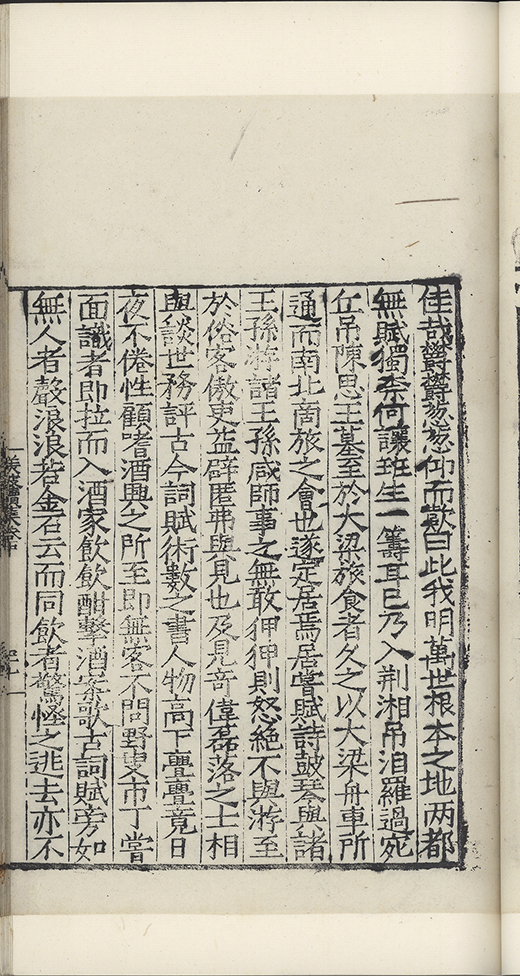 佳哉欝欝葱葱仰而歎曰此我明萬世根本之地两都
無賦獨柰何讓班生一籌耳已乃入荆湘吊汨羅過宛
丘吊陳思王墓至於大梁旅食者久之以大梁舟車所
通而南北商旅之會也遂定居焉居嘗賦詩鼓琴與諸
王孫游諸王孫咸師事之無敢狎狎則怒絶不與游至
於俗客傲吏益辟匿弗與見也及見竒偉磊落之士相
與談世務評古今詞賦術數之書人物高下亹亹竟日
夜不倦性顧嗜酒興之所至即無客不問野叟市丁嘗
面識者即拉而入酒家飲飲酣擊酒案歌古詞賦旁如
無人者聲浪浪若金石云而同飲者驚怪之逃去亦不